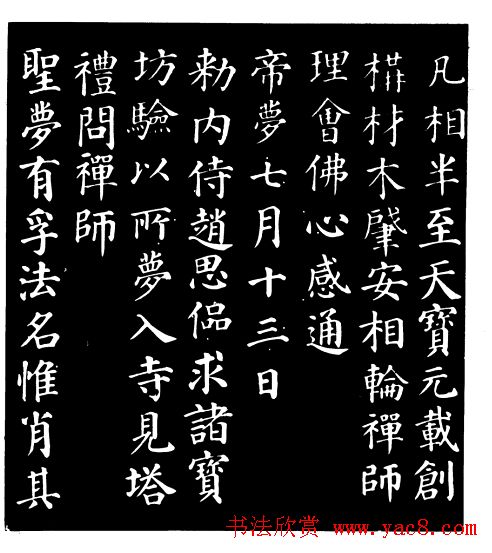 凡相半至天寶元載創
構材木肇安相輪禪師
理會佛心感通
帝夢七月十三日
勅内侍趙思偘求諸寶
坊驗以所夢入寺見塔
禮問禪師
聖夢有孚法名惟肖其
书法欣赏 www.yac8.com